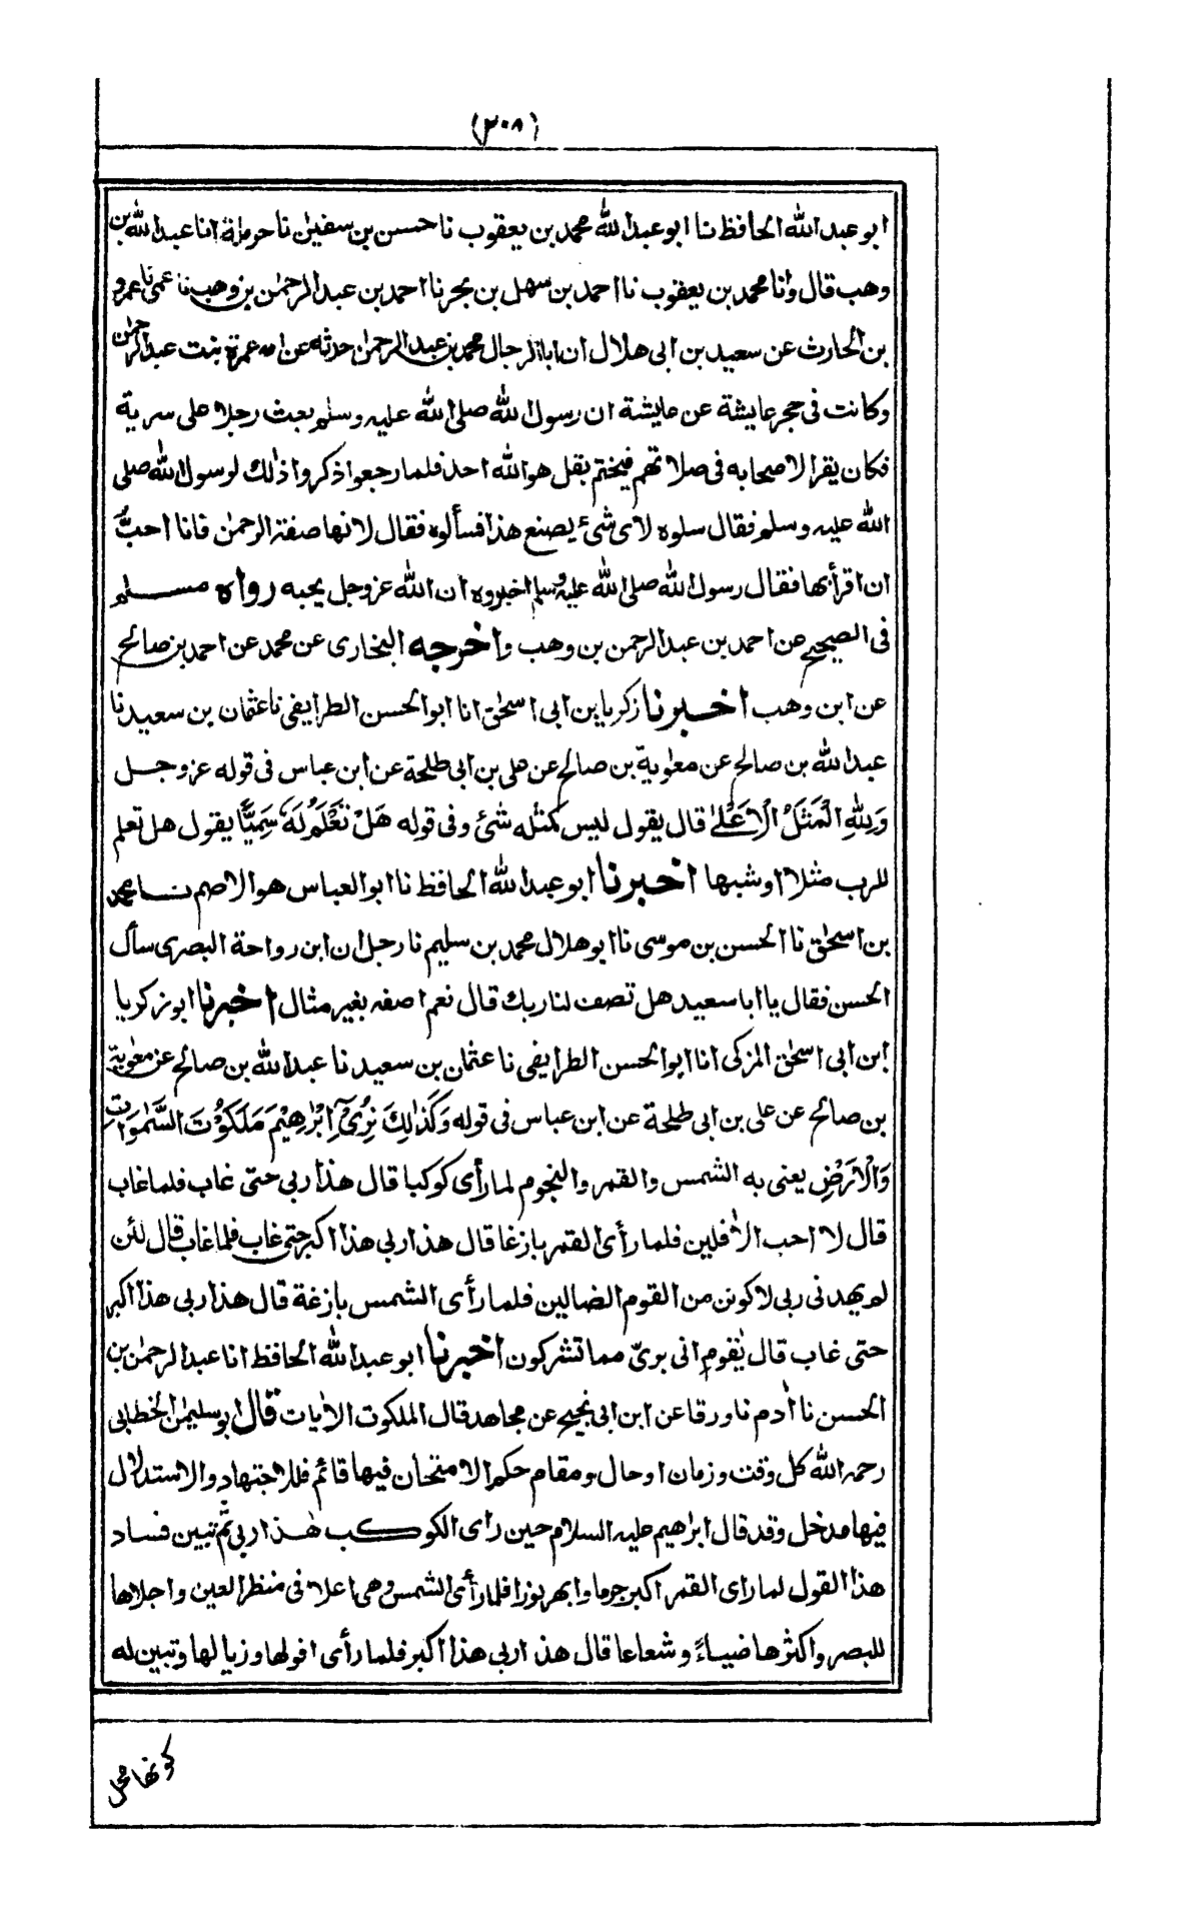 (٣٠٨)
ابو عبد الله الحافظ نا ابو عبد الله محمد بن يعقوب نا حسن بن سفين نا حرملة انا عبد الله بن
وهب قال وانا محمد بن يعقوب نا احمد بن سهل بن بحر نا احمد بن عبد الرحمٰن بن وهب نا عمى نا عمرو
بن الحارث عن سعيد بن ابى هلال ان ابا الرجال محمد بن عبد الرحمن حدثه عن امه عمرة بنت عبد الرحمٰن
وكانت فى حجر عايشة عن عايشة ان رسول الله صلى الله عليه وسلم بعث رجلا على سرية
فكان يقرا لاصحابه فى صلاتهم فيختم بقل هو الله احد فلما رجعوا ذكروا ذٰلك لرسول الله صلى
الله عليه وسلم فقال سلوه لاى شئ يصنع هذا فسألوه فقال لانها صفة الرحمٰن فانا احبُّ
ان اقرأ بها فقال رسول الله صلى الله عليه وسلم اخبروه ان الله عز وجل يحبه رواه مسلم
فى الصحيح عن احمد بن عبد الرحمن بن وهب واخرجه البخارى عن محمد عن احمد بن صالح
عن ابن وهب اخبرنا زكريا بن ابى اسحٰق انا ابو الحسن الطرايفى نا عثمان بن سعيد نا
عبد الله بن صالح عن معٰوية بن صالح عن على بن ابى طلحة عن ابن عباس فى قوله عز وجل
وَلِلّٰهِ الْمَثَلُ الْاَعْلىٰ قال يقول ليس كمثله شئ وفى قوله هَلْ تَعْلَمُ لَهٗ سَمِيًّا يقول هل تعلم
للرب مثلا او شبها اخبرنا ابو عبد الله الحافظ نا ابو العباس هو الاصم نا محمد
بن اسحٰق نا الحسن بن موسى نا ابو هلال محمد بن سليم نا رجل ان ابن رواحة البصرى سأل
الحسن فقال يا ابا سعيد هل تصف لنا ربك قال نعم اصفه بغير مثال اخبرنا ابو زكريا
ابن ابى اسحٰق المزكى انا ابو الحسن الطرايفى نا عثمان بن سعيد نا عبد الله بن صالح عن معٰوية
بن صالح عن على بن ابى طلحة عن ابن عباس فى قوله وَكَذٰلِكَ نُرِىْٓ اِبْرٰهِيْمَ مَلَكُوْتَ السَّمٰوَاتِ
وَالْاَرْضِ يعنى به الشمس والقمر والنجوم لما رأى كوكبا قال هذا ربى حتى غاب فلما غاب
قال لا احب الاٰفلين فلما رأى القمر بازغا قال هذا ربى هذا اكبر حتى غاب فلما غاب قال لئن
لم يهدنى ربى لاكونن من القوم الضالين فلما رأى الشمس بازغة قال هذا ربى هذا اكبر
حتى غاب قال يٰقوم انى برئ مما تشركون اخبرنا ابو عبد الله الحافظ انا عبد الرحمٰن بن
الحسن نا اٰدم نا ورقا عن ابن ابى نجيح عن مجاهد قال الملكوت الاٰيات قال ابو سليمٰن الخطابى
رحمه الله كل وقت وزمان او حال ومقام حكم الامتحان فيها قائم فللاجتهاد والاستدلال
فيها مدخل وقد قال ابراهيم عليه السلام حين راى الكوكب هٰذا ربى ثم تبين فساد
هذا القول لما راى القمر اكبر جرما وابهر نورا فلما رأى الشمس وهى اعلاه فى منظر العين واجلاها
للبصر واكثرها ضياءً وشعاعا قال هذا ربى هذا اكبر فلما رأى افولها وزيالها وتبين له
كونها محل